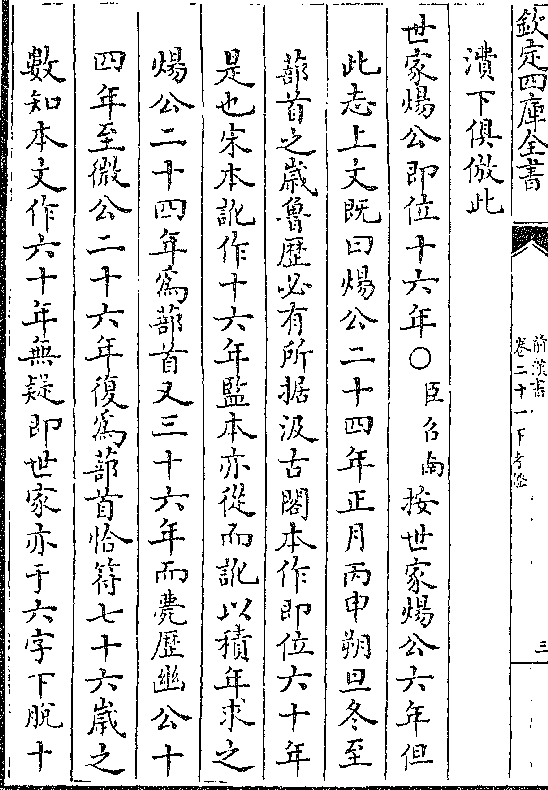 欽定四庫全書
前漢書
卷二十一下考證
三
潰下俱倣此
世家煬公即位十六年〇臣召南按世家煬公六年但
此志上文既曰煬公二十四年正月丙申朔旦冬至
蔀首之嵗魯歴必有所据汲古閣本作即位六十年
是也宋本訛作十六年監本亦從而訛以積年求之
煬公二十四年為蔀首又三十六年而薨歴幽公十
四年至微公二十六年復為蔀首恰符七十六嵗之
數知本文作六十年無疑即世家亦于六字下脫十